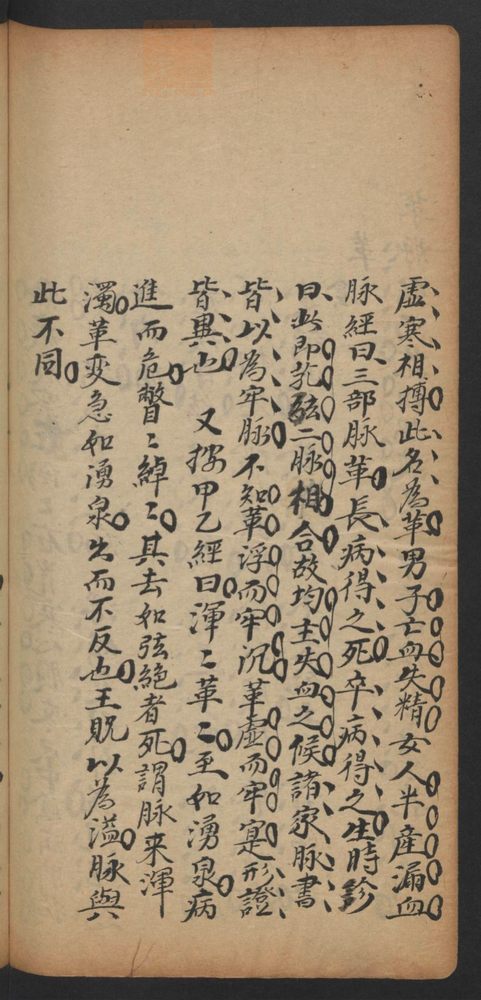 虛寒相摶此名為革男子亡血失精女人半產漏血
脉經曰三部脉革長病得之死卒病得之生時診
曰此即芤弦二脉相合故均主失血之候諸家脉書
皆以為牢脉不知革浮而牢沉革虛而牢寔形證
皆異也 又按甲乙經曰渾〻革〻至如湧泉病
進而危瞥〻綽〻其去如弦絕者死謂脉来渾
濁革变急如湧泉出而不反也王貺以為溢脉與
此不同